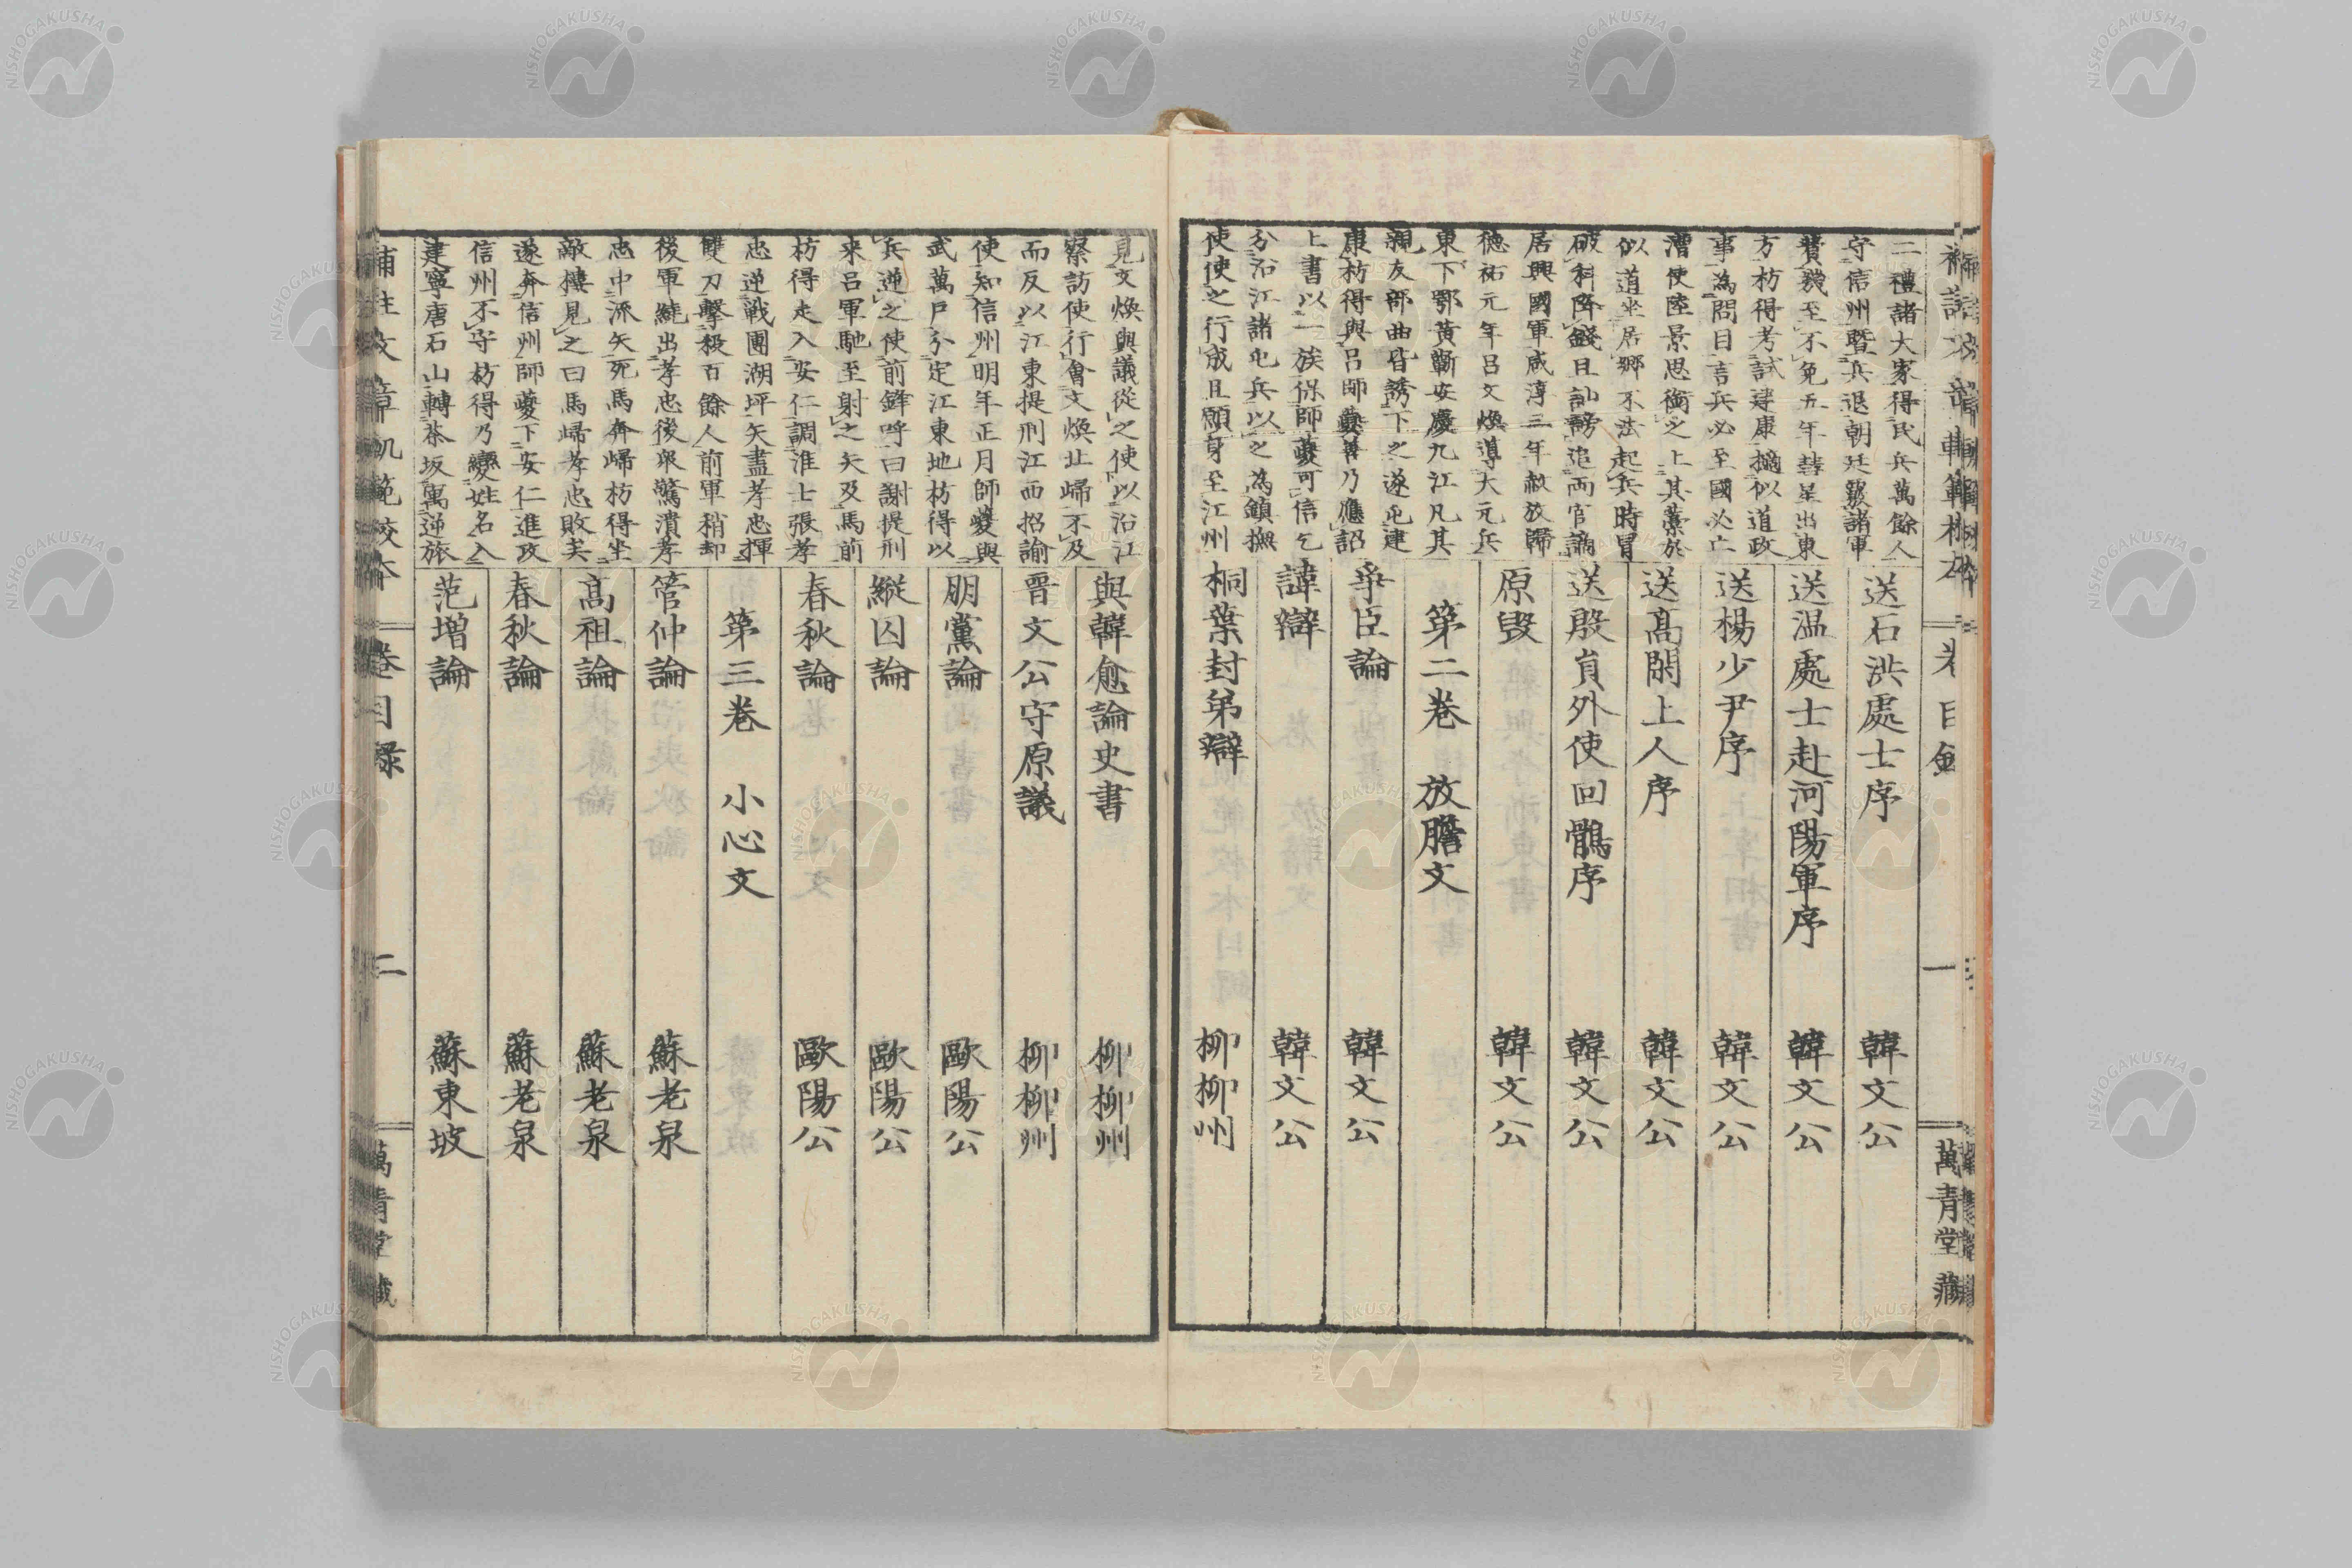 二禮諸大家得民兵萬餘人
守信州曁兵退朝廷覈諸軍
費幾至不免五年彗星出東
方枋得考試建康擿似道政
事為問目言兵必至國必亡
漕使陸景思銜之上其藁於
似道坐居鄉不法起兵時冒
破科降錢且訕謗追兩官謫
居興國軍咸淳三年赦放歸
德祐元年呂文煥導大元兵
東下鄂黃蘄安慶九江凡其
親友部曲皆誘下之遂屯建
康枋得與呂師夔善乃應詔
上書以一族保師夔可信乞
分沿江諸屯兵以之為鎮撫
使使之行成且願身至江州
送石洪處士序 韓文公
送温處士赴河陽軍序 韓文公
送楊少尹序 韓文公
送高閑上人序 韓文公
送殷員外使回鶻序 韓文公
原毀 韓文公
第二卷 放膽文
爭臣論 韓文公
諱辯 韓文公
桐葉封弟辯 柳柳州
卷目錄
一
萬青堂藏
見文煥與議從之使以沿江
察訪使行會文煥北歸不及
而反以江東提刑江西招諭
使知信州明年正月師夔與
武萬戶分定江東地枋得以
兵逆之使前鋒呼曰謝提刑
来呂軍馳至射之矢及馬前
枋得走入安仁調淮士張孝
忠逆戰團湖坪矢盡孝忠揮
雙刀擊殺百餘人前軍稍却
後軍繞出孝忠後衆驚潰孝
忠中流矢死馬奔歸枋得坐
敵樓見之曰馬歸孝忠敗矣
遂奔信州師夔下安仁進攻
信州不守枋得乃變姓名入
建寧唐石山轉茶坂寓逆旅
與韓愈論史書 柳柳州
晋文公守原議 柳柳州
朋黨論 歐陽公
縱囚論 歐陽公
春秋論 歐陽公
第三卷 小心文
管仲論 蘇老泉
高祖論 蘇老泉
春秋論 蘇老泉
范增論 蘇東坡
補註文章軌範校本
卷目錄
二
萬青堂藏